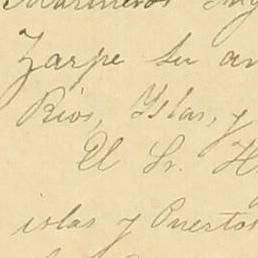 Marineros
Zarpe su an
Rios, Yslas, y
El Sr. H
islas y Puertos